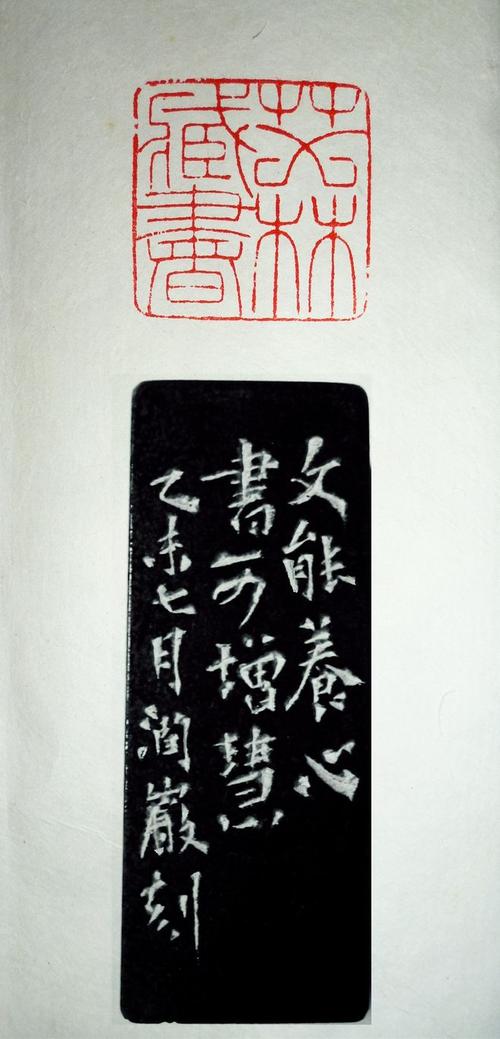 林
藏書
文能養心
書可增慧
乙未七月潤巖刻